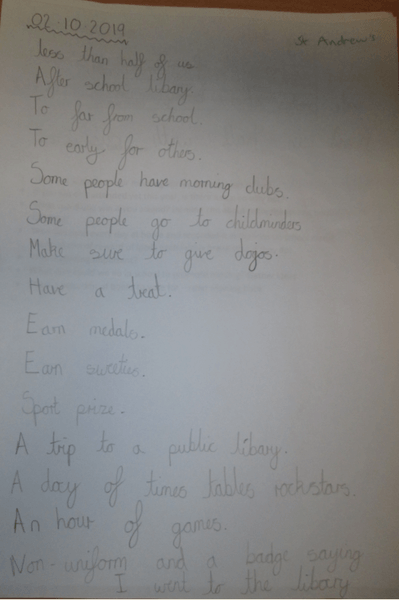 02.10.2019
St Andrew's
less than half of us
After school libary.
To far from school.
To early for others.
Some people have morning clubs.
Some people go to childminders
Make sure to give dojos.
Have a treat.
Earn medals.
Earn sweeties.
Sport prize.
A trip to a public libary.
A day of times tables rockstars.
An hour of games.
Non-uniform and a badge saying
I went to the libary